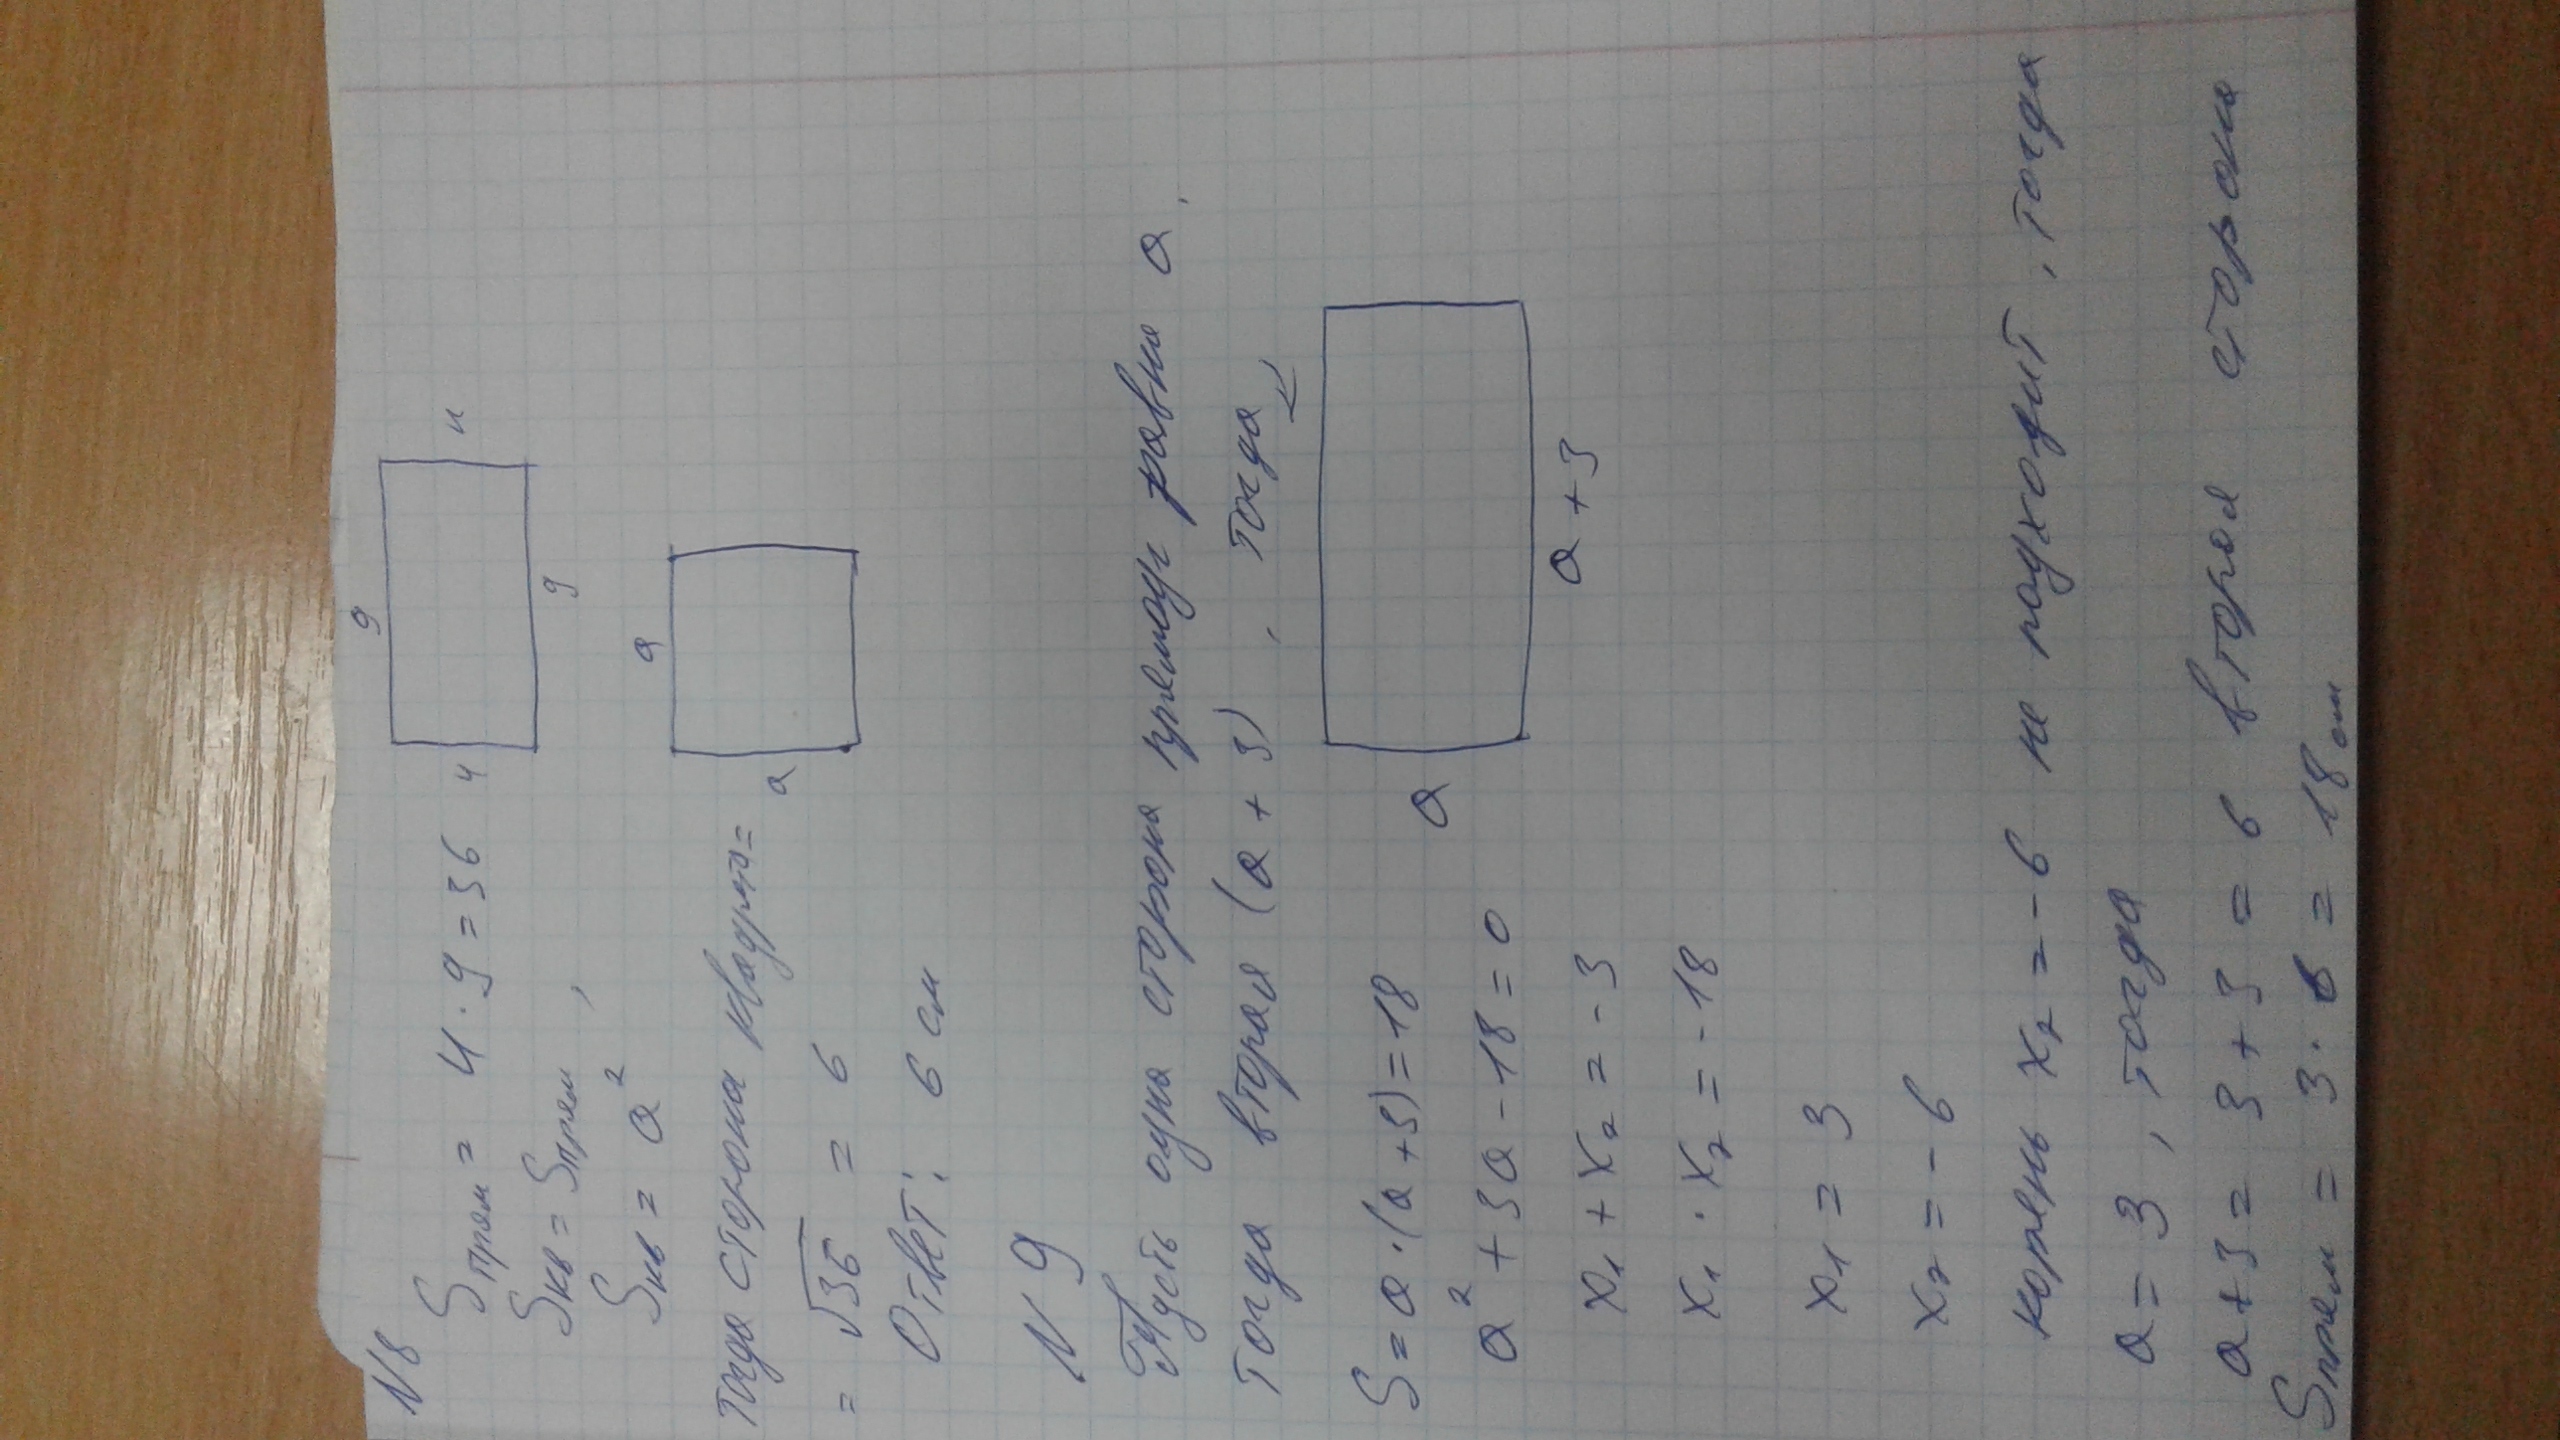 N8
9
Sпрям = 4 · 9 = 36
4
4
9
Sкв = Sпрям,
Sкв = a²
a
a
Тогда сторона квадрата =
= √36 = 6
Ответ: 6 см
N 9
Пусть одна сторона прямоуг равна a,
тогда вторая (a + 3), тогда
S = a · (a + 3) = 18
a
a² + 3a - 18 = 0
a + 3
x₁ + x₂ = - 3
x₁ · x₂ = - 18
x₁ = 3
x₂ = - 6
корень x₂ = - 6 не подходит, тогда
a = 3, тогда
a + 3 = 3 + 3 = 6 вторая сторона
Sпрям = 3 · 6 = 18 см